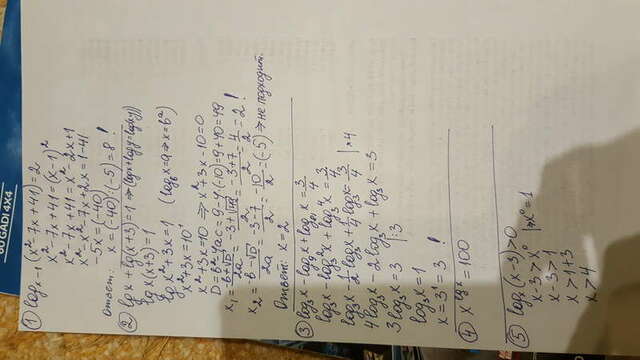 60 GADI 4X4
① log x-1 (x²-7x+41)=2
x²-7x+41=(x-1)²
x²-7x+41=x²-2x+1
x²-x²-7x+2x=1-41
-5x=(-40)
ответ: x=(-40):(-5)=8 !
② lg x + lg(x+3)=1 ⇒ (log x+log y=log(xy))
lg x(x+3)=1
lg x²+3x=1 (log_b x=a ⇒ x=b^a)
x²+3x=10¹
x²+3x=10 ⇒ x²+3x-10=0
D=b²-4ac=9-4·(-10)=9+40=49
x₁=(-b+√D)/2a=(-3+√49)/2=(-3+7)/2=4/2=2 !
x₂=(-b-√D)/2a=(-3-7)/2=-10/2=(-5) ⇒ не подходит.
Ответ: x=2
③ log₃x-log₉x+log₈₁x=3/4
log₃x-log₃²x+log₃⁴x=3/4
log₃x-1/2 log₃x+1/4 log₃x=3/4 |×4
4log₃x-2log₃x+log₃x=3
3log₃x=3 |:3
log₃x=1
x=3¹=3 !
④ x^lg x=100
⑤ log_x(x-3)>0
x-3>x⁰ |⇒x⁰=1
x-3>1
x>1+3
x>4